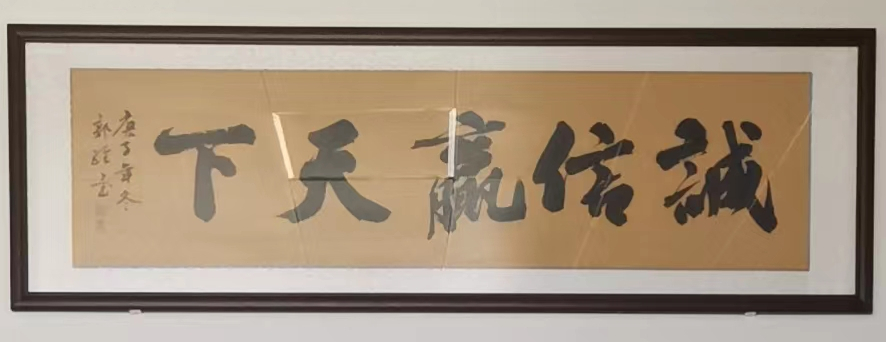 誠信贏天下
庚子年冬
郭